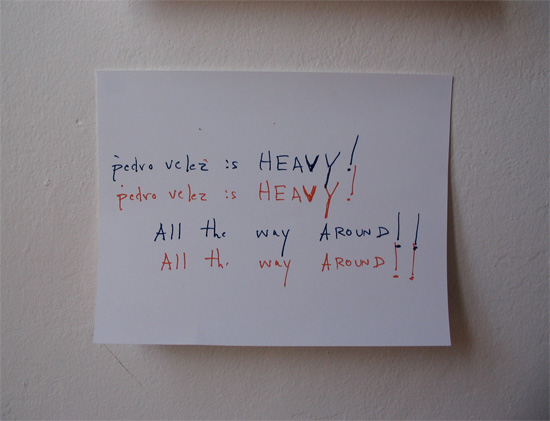 pedro velez is HEAVY!
pedro velez is HEAVY!
All the way AROUND!!
All the way AROUND!!